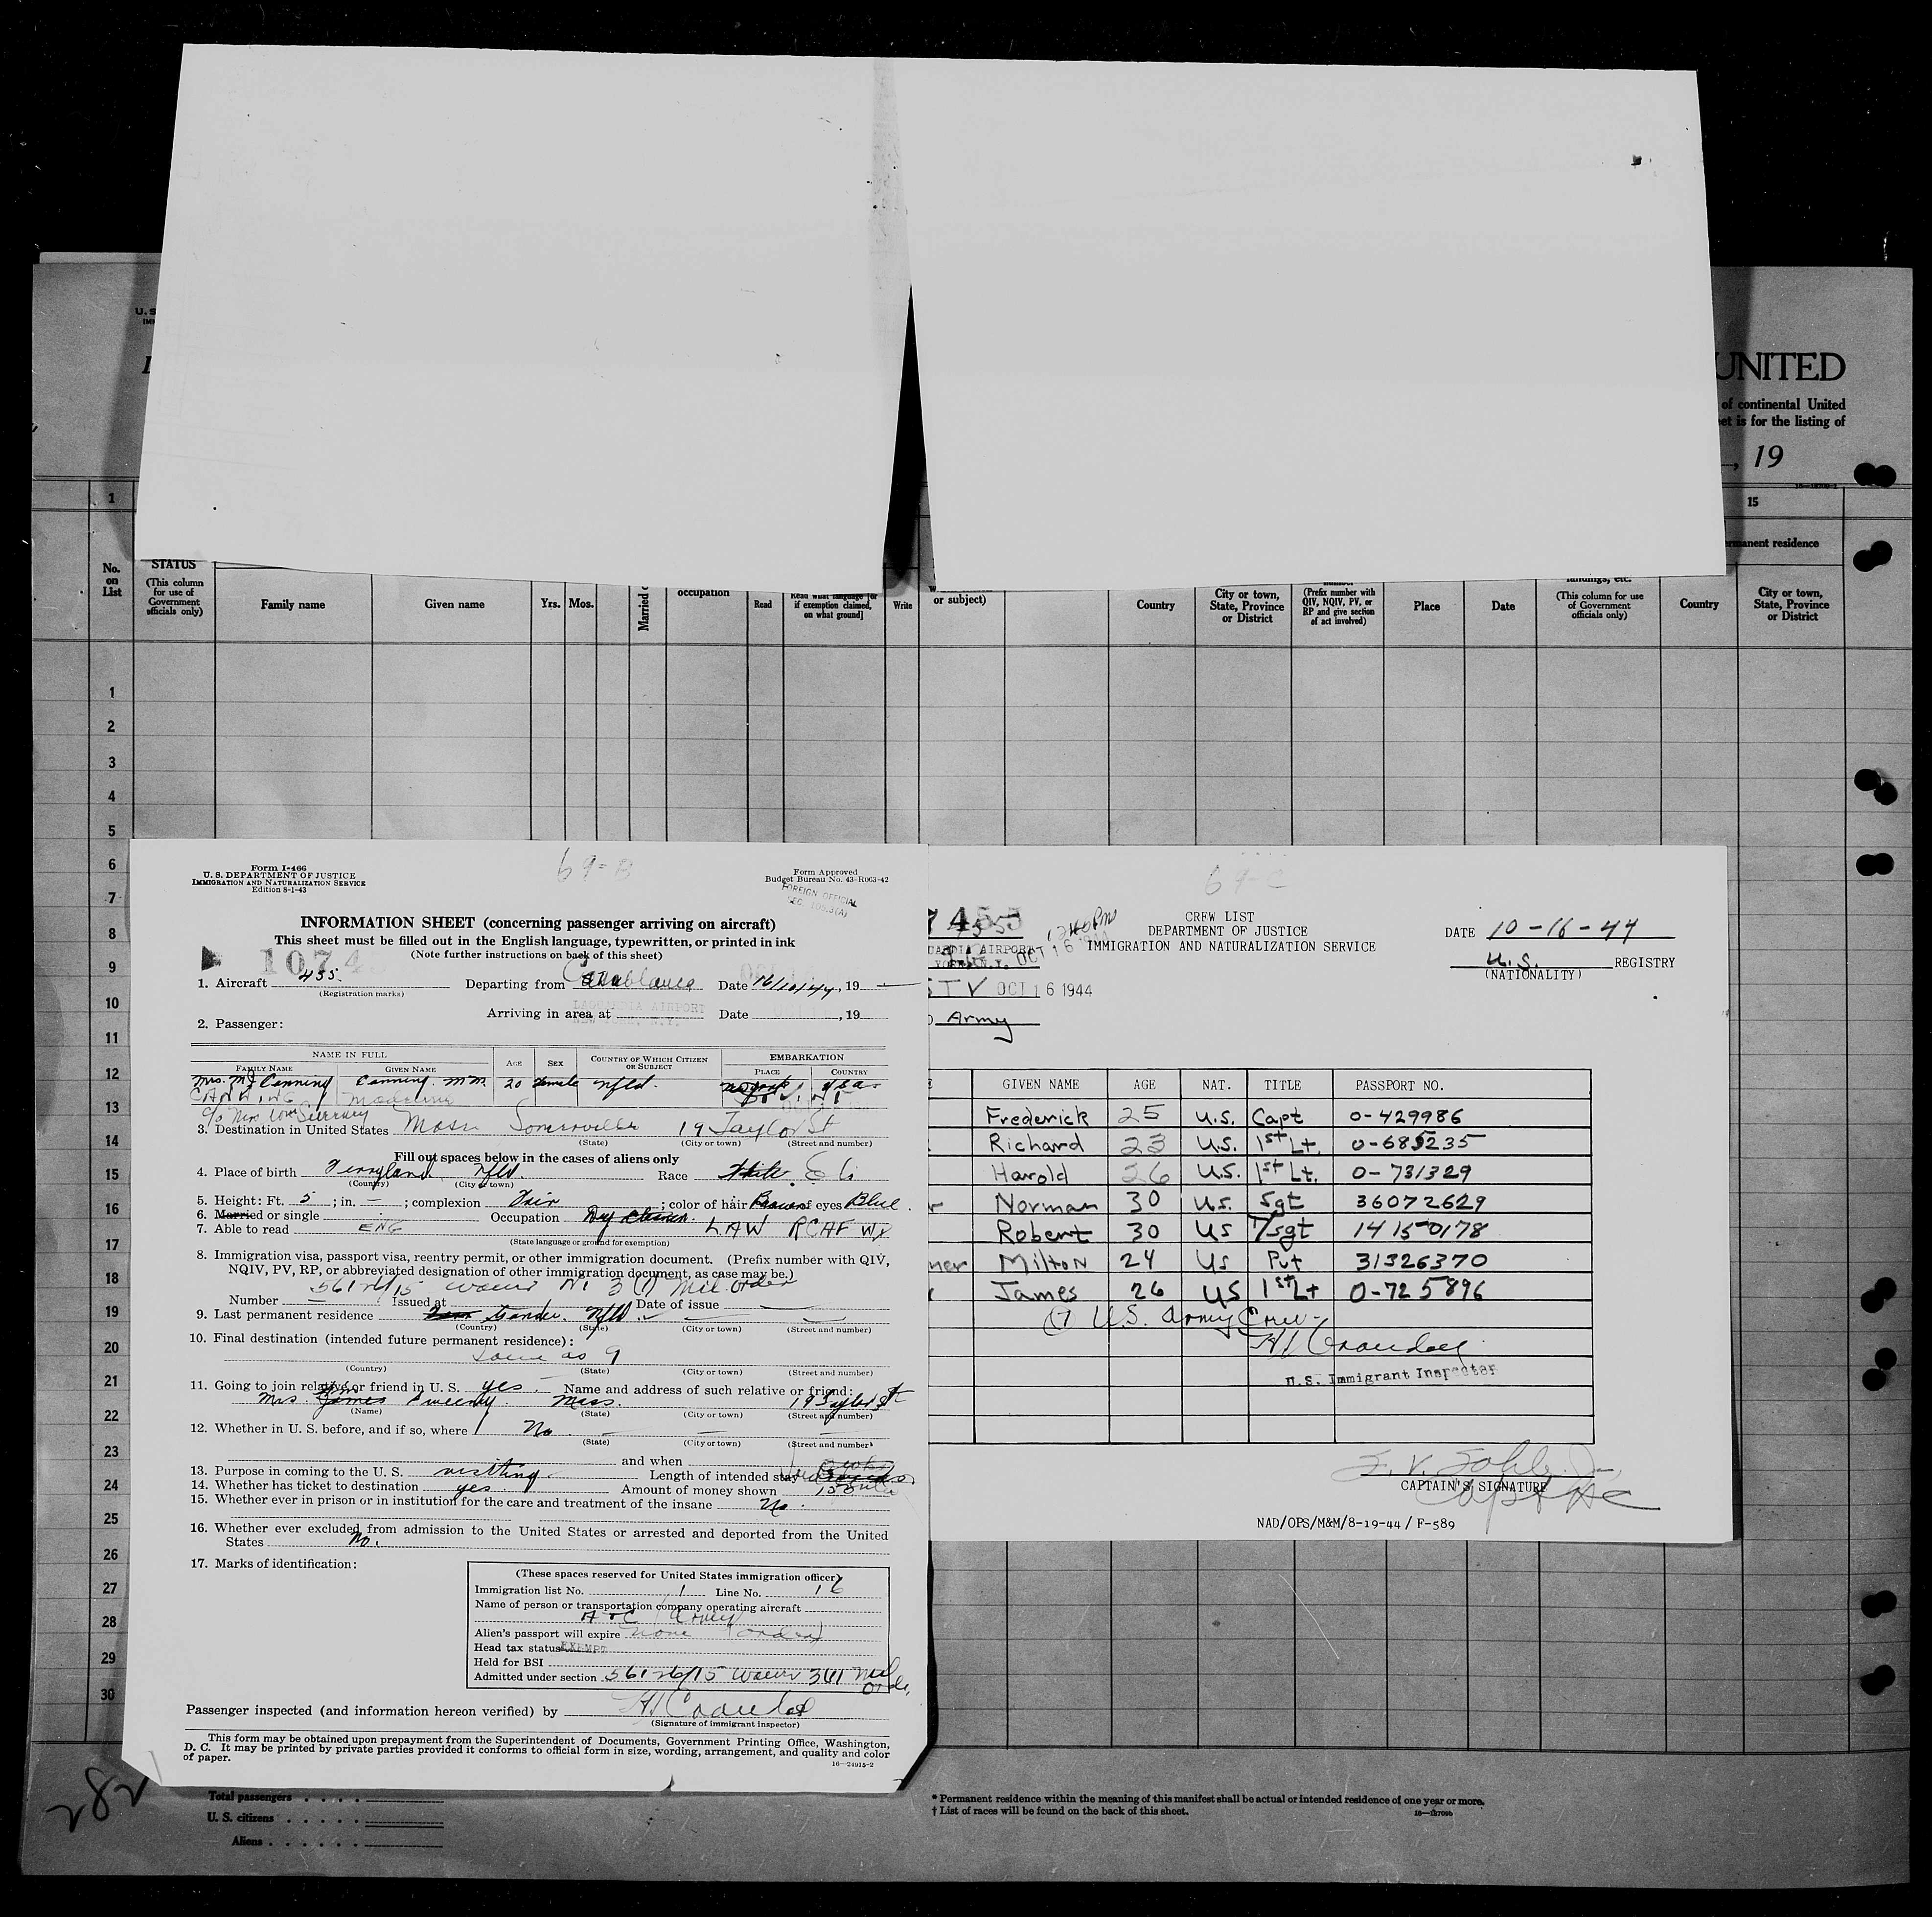 UNITED
of continental United
is for the listing of
, 19
1
15
permanent residence
No.
on
List
STATUS
(This column
for use of
Government
officials only)
Family name
Given name
Yrs.
Mos.
Married
occupation
Read
Read what language [or
if exemption claimed,
on what ground]
Write
or subject)
Country
City or town,
State, Province
or District
(Prefix number with
QIV, NQIV, PV, or
RP and give section
of act involved)
Place
Date
landings, etc.
(This column for use
of Government
officials only)
Country
City or town,
State, Province
or District
1
2
3
4
5
6
7
8
9
10
11
12
13
14
15
16
17
18
19
20
21
22
23
24
25
26
27
28
29
30
Form I-466
U. S. DEPARTMENT OF JUSTICE
IMMIGRATION AND NATURALIZATION SERVICE
Edition 8-1-43
69-B
Form Approved
Budget Bureau No. 43-R063-42
FOREIGN OFFICIAL
INFORMATION SHEET (concerning passenger arriving on aircraft)
This sheet must be filled out in the English language, typewritten, or printed in ink
(Note further instructions on back of this sheet)
1074
1. Aircraft 455 Departing from Casablanca Date 16/10/44, 19
(Registration marks)
Arriving in area at LAGUARDIA AIRPORT NEW YORK, N.Y. Date , 19
2. Passenger:
NAME IN FULL AGE SEX COUNTRY OF WHICH CITIZEN OR SUBJECT EMBARKATION
FAMILY NAME GIVEN NAME PLACE COUNTRY
Mrs. M Canning Canning. M M. 20 Female Nfld.
CANNING Madeline
c/o Mrs Wm Sweeney
3. Destination in United States Mass Somerville 19 Taylor St
(State) (City or town) (Street and number)
Fill out spaces below in the cases of aliens only
4. Place of birth Ferryland Nfld. Race White
(Country) (City or town)
5. Height: Ft. 5; in. —; complexion Fair; color of hair Brown of eyes Blue.
6. Married or single Occupation
7. Able to read ENG LAW RCAF WD
(State language or ground for exemption)
8. Immigration visa, passport visa, reentry permit, or other immigration document. (Prefix number with QIV,
NQIV, PV, RP, or abbreviated designation of other immigration document, as case may be.)
Mil. Order
Number Issued at Date of issue
9. Last permanent residence Gander. Nfld.
(Country) (State) (City or town) (Street and number)
10. Final destination (intended future permanent residence):
Same as 9
(Country) (State) (City or town) (Street and number)
11. Going to join relative or friend in U. S. yes. Name and address of such relative or friend:
Mrs. James Sweeney. Mass. 19 Taylor St
(Name) (State) (City or town) (Street and number)
12. Whether in U. S. before, and if so, where No
(State) (City or town) (Street and number)
and when
13. Purpose in coming to the U. S. visiting Length of intended stay
14. Whether has ticket to destination yes. Amount of money shown
15. Whether ever in prison or in institution for the care and treatment of the insane No.
16. Whether ever excluded from admission to the United States or arrested and deported from the United
States No.
17. Marks of identification:
(These spaces reserved for United States immigration officer)
Immigration list No. 1 Line No. 16
Name of person or transportation company operating aircraft
ATC (Army)
Alien's passport will expire none
Head tax status EXEMPT
Held for BSI
Admitted under section
Passenger inspected (and information hereon verified) by
(Signature of immigrant inspector)
This form may be obtained upon prepayment from the Superintendent of Documents, Government Printing Office, Washington,
D. C. It may be printed by private parties provided it conforms to official form in size, wording, arrangement, and quality and color
of paper.
16—24915-2
69-C
CREW LIST
DEPARTMENT OF JUSTICE
IMMIGRATION AND NATURALIZATION SERVICE
OCT 16 1944
OCT 16 1944
Army
DATE 10-16-44
U.S. REGISTRY
(NATIONALITY)
GIVEN NAME AGE NAT. TITLE PASSPORT NO.
Frederick 25 U.S. Capt 0-429986
Richard 23 U.S. 1st Lt. 0-685235
Harold 26 U.S. 1st Lt. 0-731329
Norman 30 U.S. Sgt 36072629
Robert 30 US T/sgt 14150178
Milton 24 US Pvt 31326370
James 26 US 1st Lt 0-725896
(7 U.S. Army Crew-
U.S. Immigrant Inspector
CAPTAIN'S SIGNATURE
NAD/OPS/M&M/8-19-44 / F-589
282
Total passengers
U. S. citizens
Aliens
* Permanent residence within the meaning of this manifest shall be actual or intended residence of one year or more.
† List of races will be found on the back of this sheet.